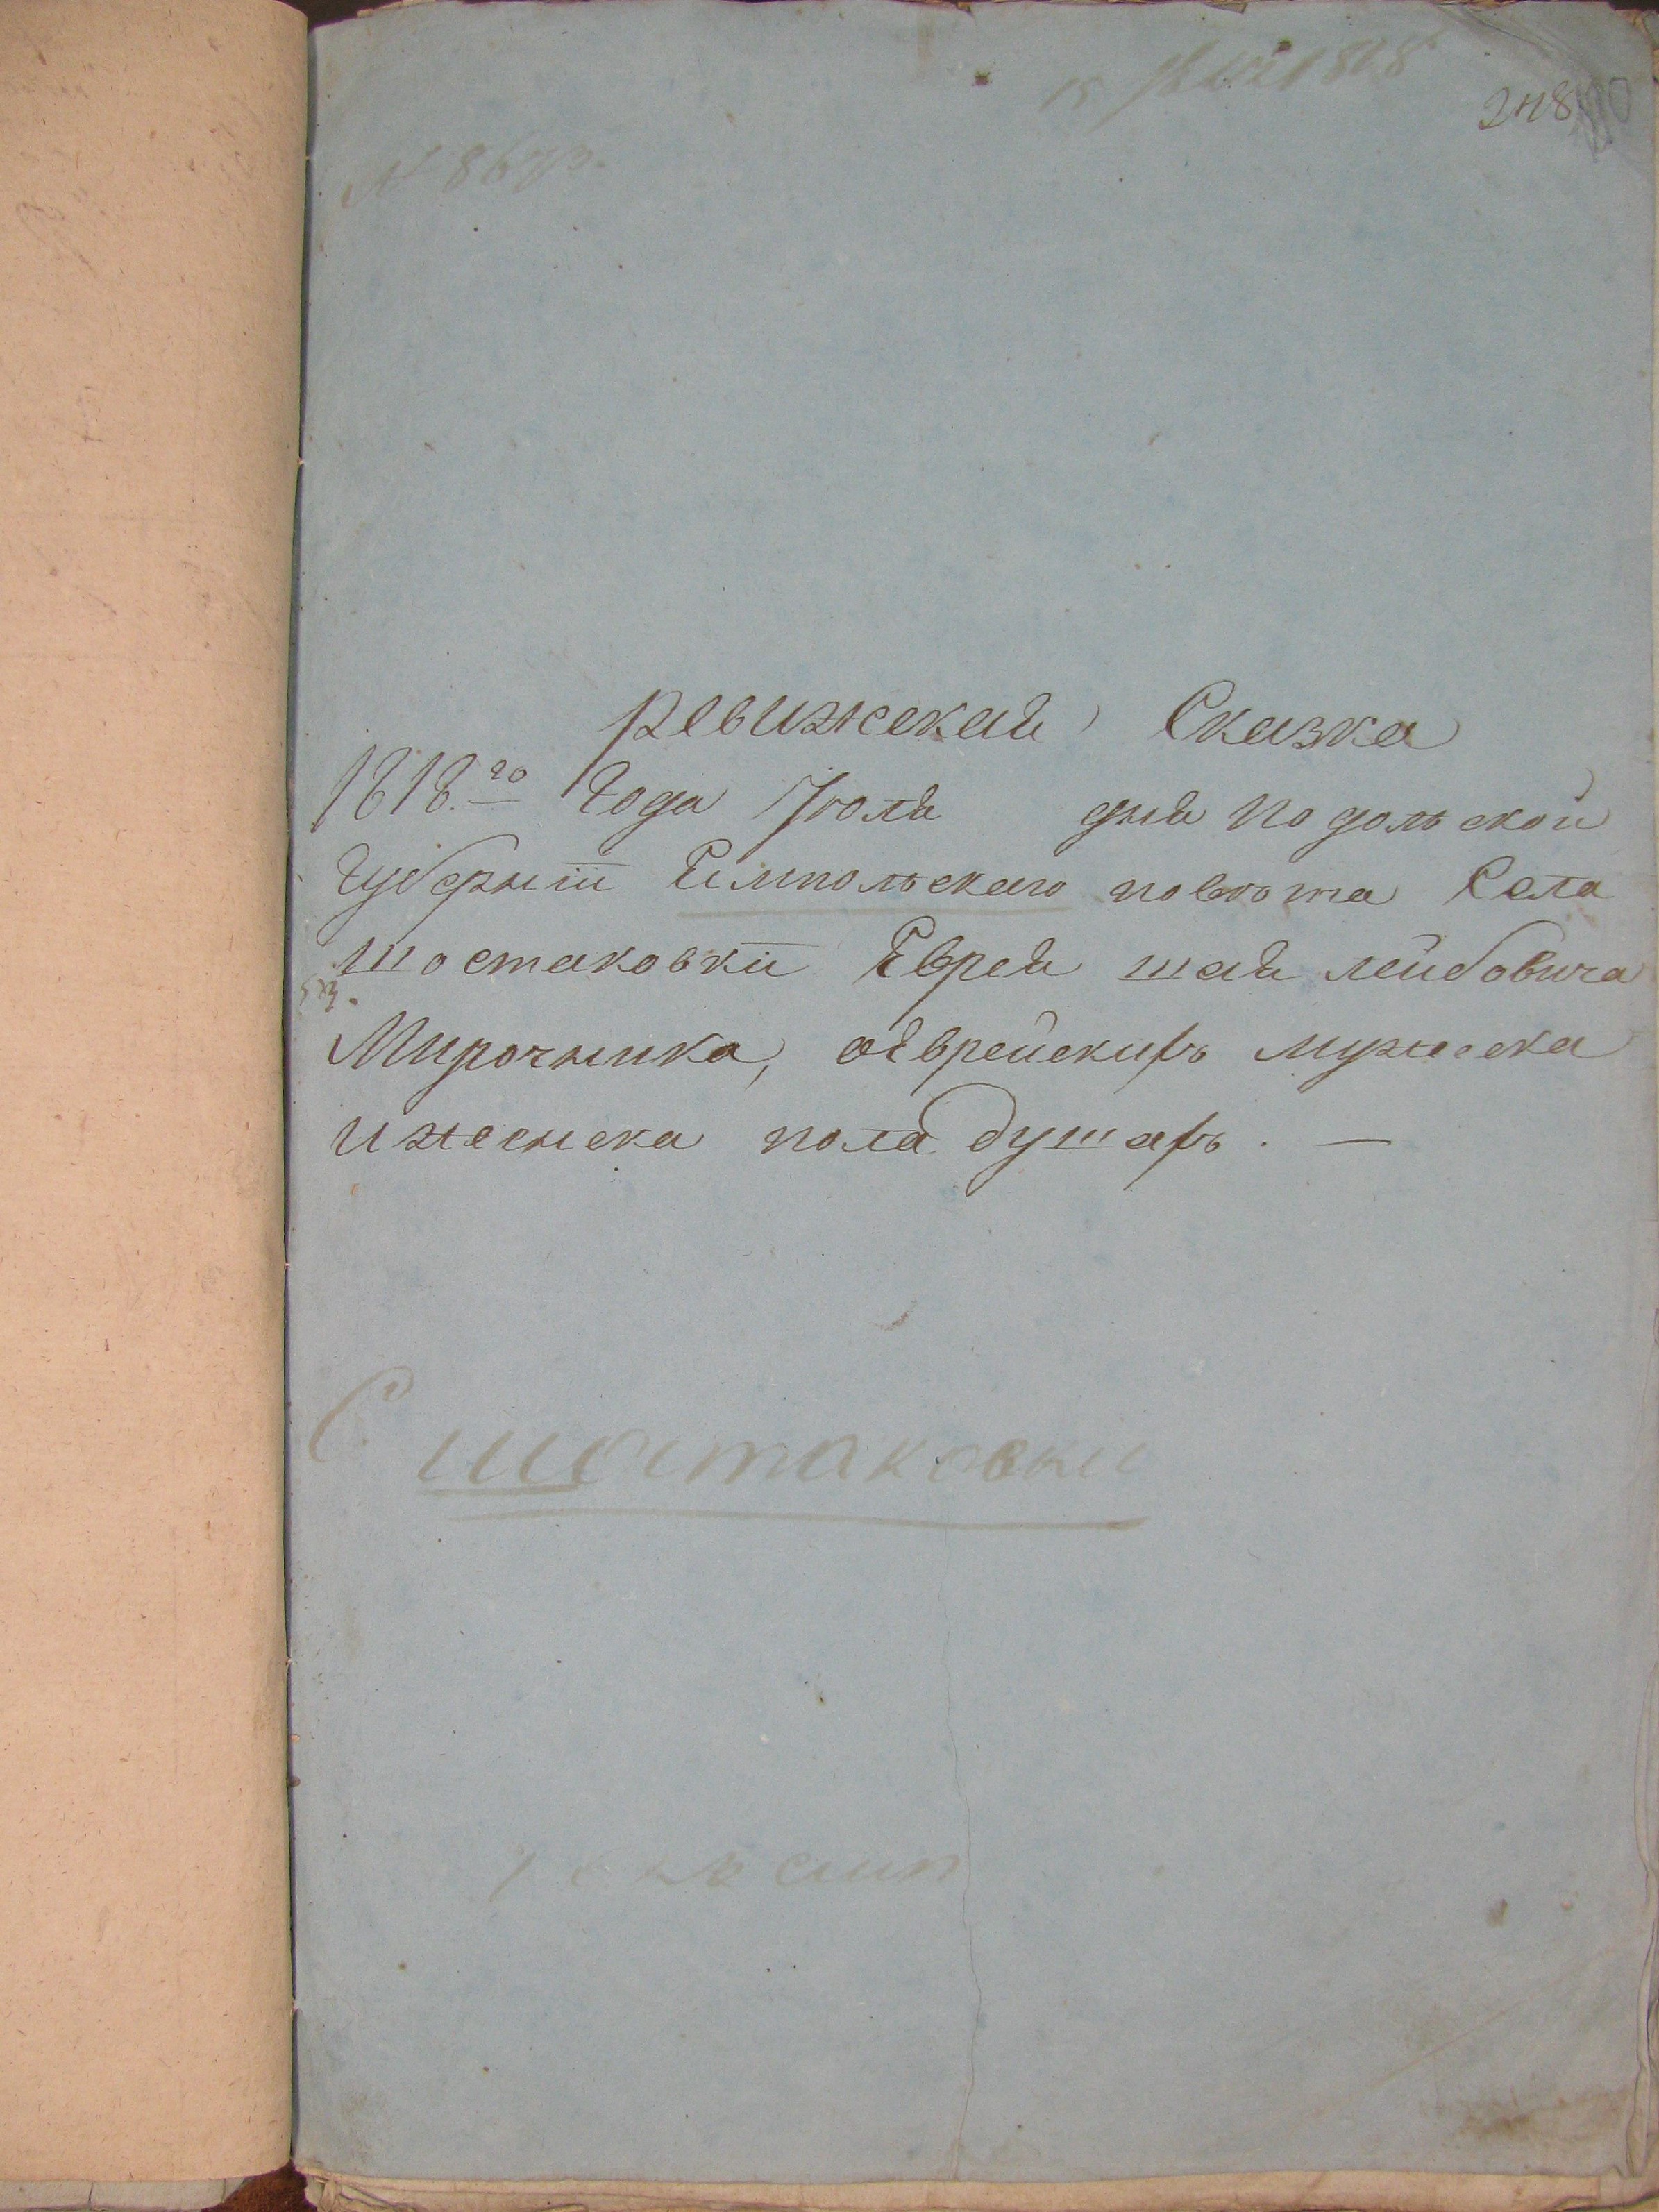 248
№ 8673.
ревижская Сказка
1818.го Года Іюля дня Подольской
Губернїи Ямпольскаго повѣта Села
Шостаковкїи Еврея шая лейбовича
Мирочника, оевреискихъ мужеска
и женска пола душахъ. —
С шостаковки